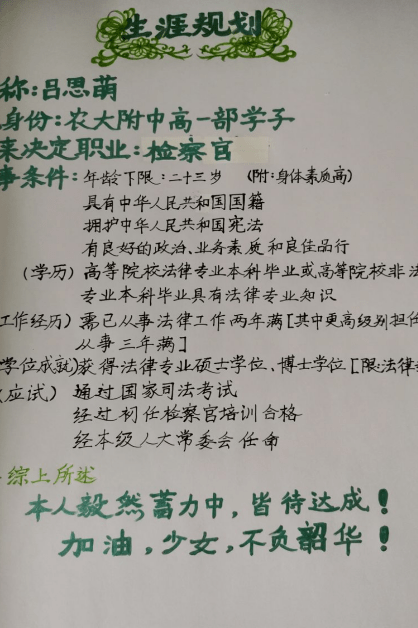 生涯规划
称:吕思萌
身份:农大附中高一部学子
来决定职业:检察官
事条件:年龄下限:二十三岁 (附:身体素质高)
具有中华人民共和国国籍
拥护中华人民共和国宪法
有良好的政治、业务素质和良佳品行
(学历)高等院校法律专业本科毕业或高等院校非法
专业本科毕业具有法律专业知识
工作经历)需已从事法律工作两年满[其中更高级别担任
从事三年满]
学位成就)获得法律专业硕士学位、博士学位[限法律
应试)通过国家司法考试
经过初任检察官培训合格
经本级人大常委会任命
综上所述
本人毅然蓄力中,皆待达成!
加油,少女,不负韶华!